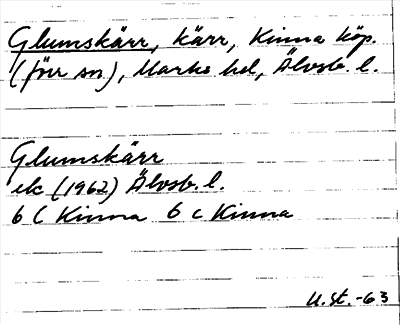 Glumskärr, kärr, Kinna köp.
(förr sn), Marks hd, Älvsb. l.
Glumskärr
ek (1962) Älvsb. l.
6 C Kinna 6 c Kinna
U.St.-63